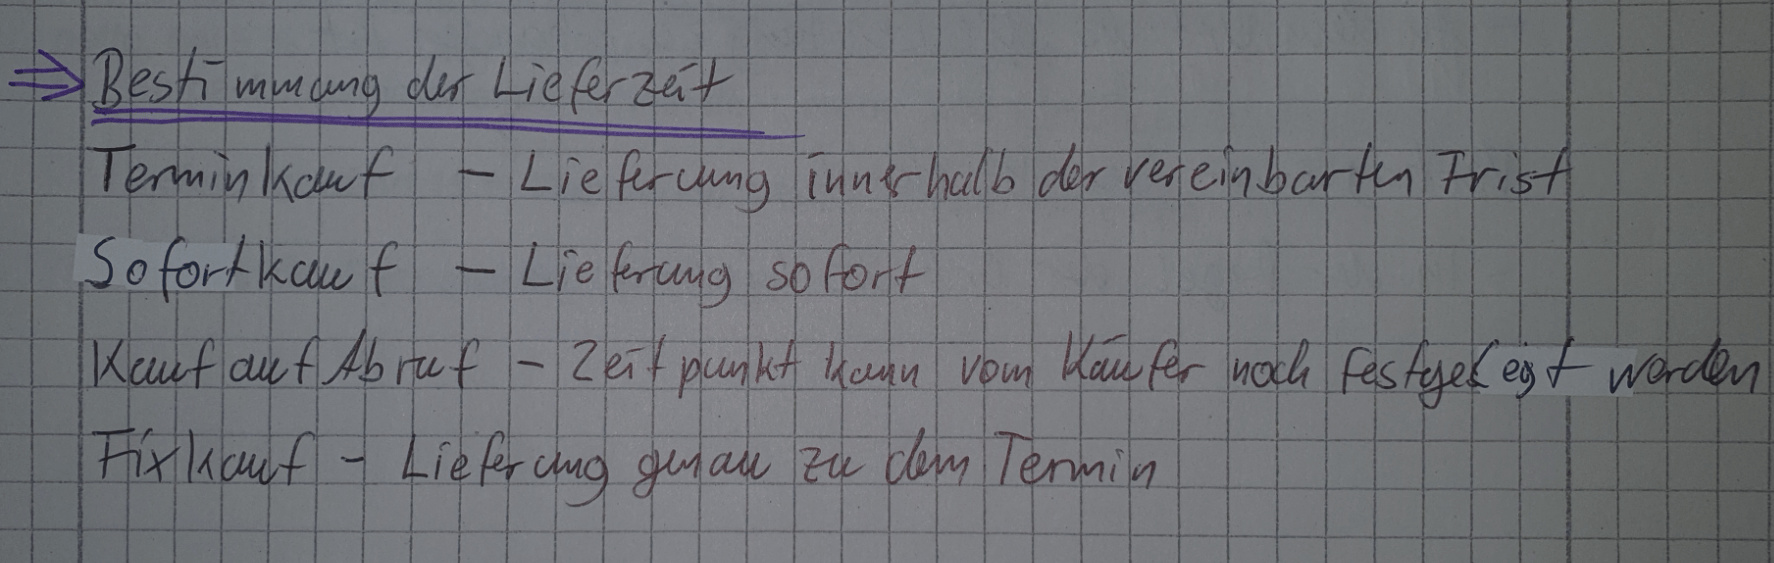 ⇒ Bestimmung der Lieferzeit
Terminkauf – Lieferung innerhalb der vereinbarten Frist
Sofortkauf – Lieferung sofort
Kauf auf Abruf – Zeitpunkt kann vom Käufer noch festgelegt werden
Fixkauf – Lieferung genau zu dem Termin